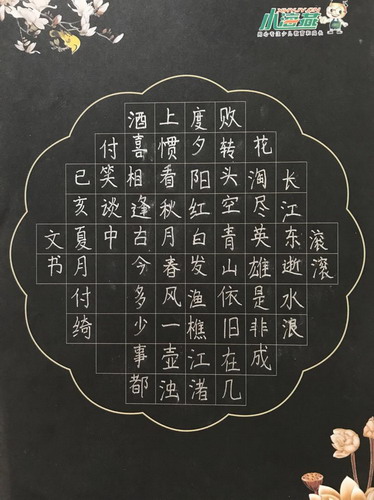 小海燕
滚滚
长江东逝水浪
花淘尽英雄是非成
败转头空青山依旧在几
度夕阳红白发渔樵江渚
上惯看秋月春风一壶浊
酒喜相逢古今多少事都
付笑谈中
已亥夏月付绮
文书